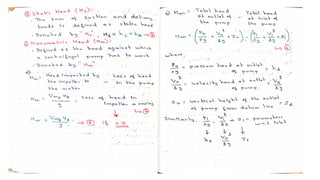 ② Static Head (Hs):-
- The sum of suction and delivery
heads is defined as static head
- Denoted by "Hs" , Hs = hs + hd → ①
③ Manometric Head (Hm):-
- Defined as the head against which
a centrifugal pump has to work.
- Denoted by "Hm"
a) Hm = Head imparted by the impeller to the water - Loss of head in the pump
Hm = Vw₂ u₂ / g - Loss of head in impeller & casing
Hm = Vw₂ u₂ / g → if
Hm = Total head at outlet of the pump - Total head at inlet of the pump
where,
= pressure head at outlet of pump = hd
= velocity head at outlet of pump
Z₀ = vertical height of the outlet of pump from datum line = Zd
Similarly, = parameters w.r.t inlet